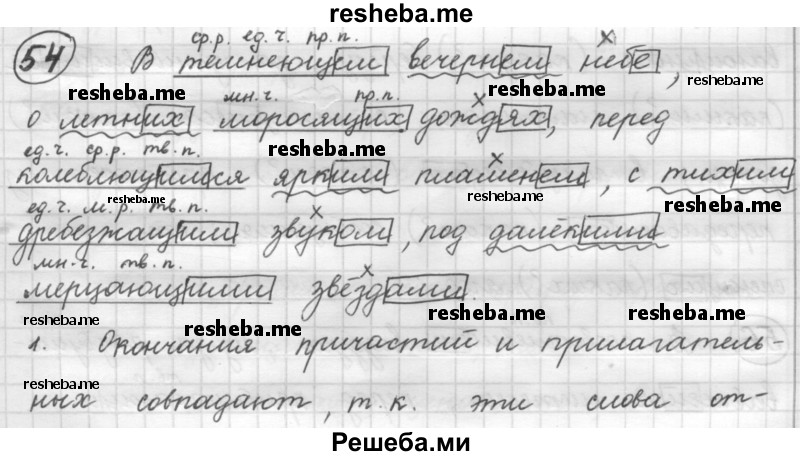 resheba.me
ср.р. ед.ч. пр.п.
54 В темнеющем вечернем небе,
resheba.me
resheba.me
мн.ч. пр.п.
о летних моросящих дождях, перед
ед.ч. ср.р. тв.п.
resheba.me
колеблющимся ярким пламенем, с тихим
resheba.me
resheba.me
resheba.me
ед.ч. м.р. тв.п.
дребезжащим звуком, под далёкими
мн.ч. тв.п.
мерцающими звёздами.
resheba.me
resheba.me
resheba.me
resheba.me
1. Окончания причастий и прилагатель-
resheba.me
ных совпадают, т.к. эти слова от-
Решеба.ми